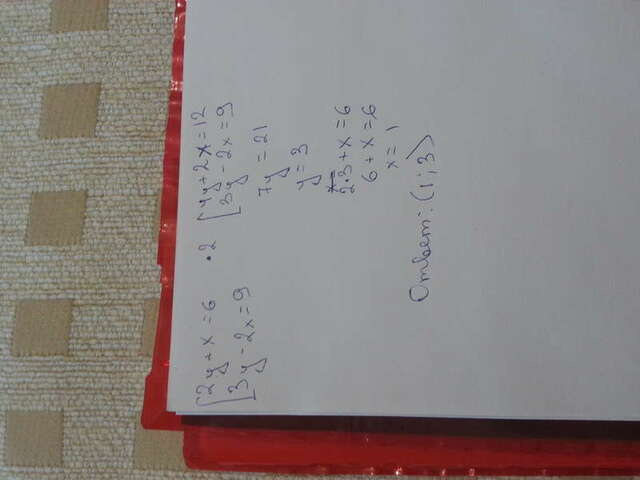 2y + x = 6 · 2
3y - 2x = 9
4y + 2x = 12
3y - 2x = 9
7y = 21
y = 3
2·3 + x = 6
6 + x = 6
x = 1
Ответ: (1; 3)